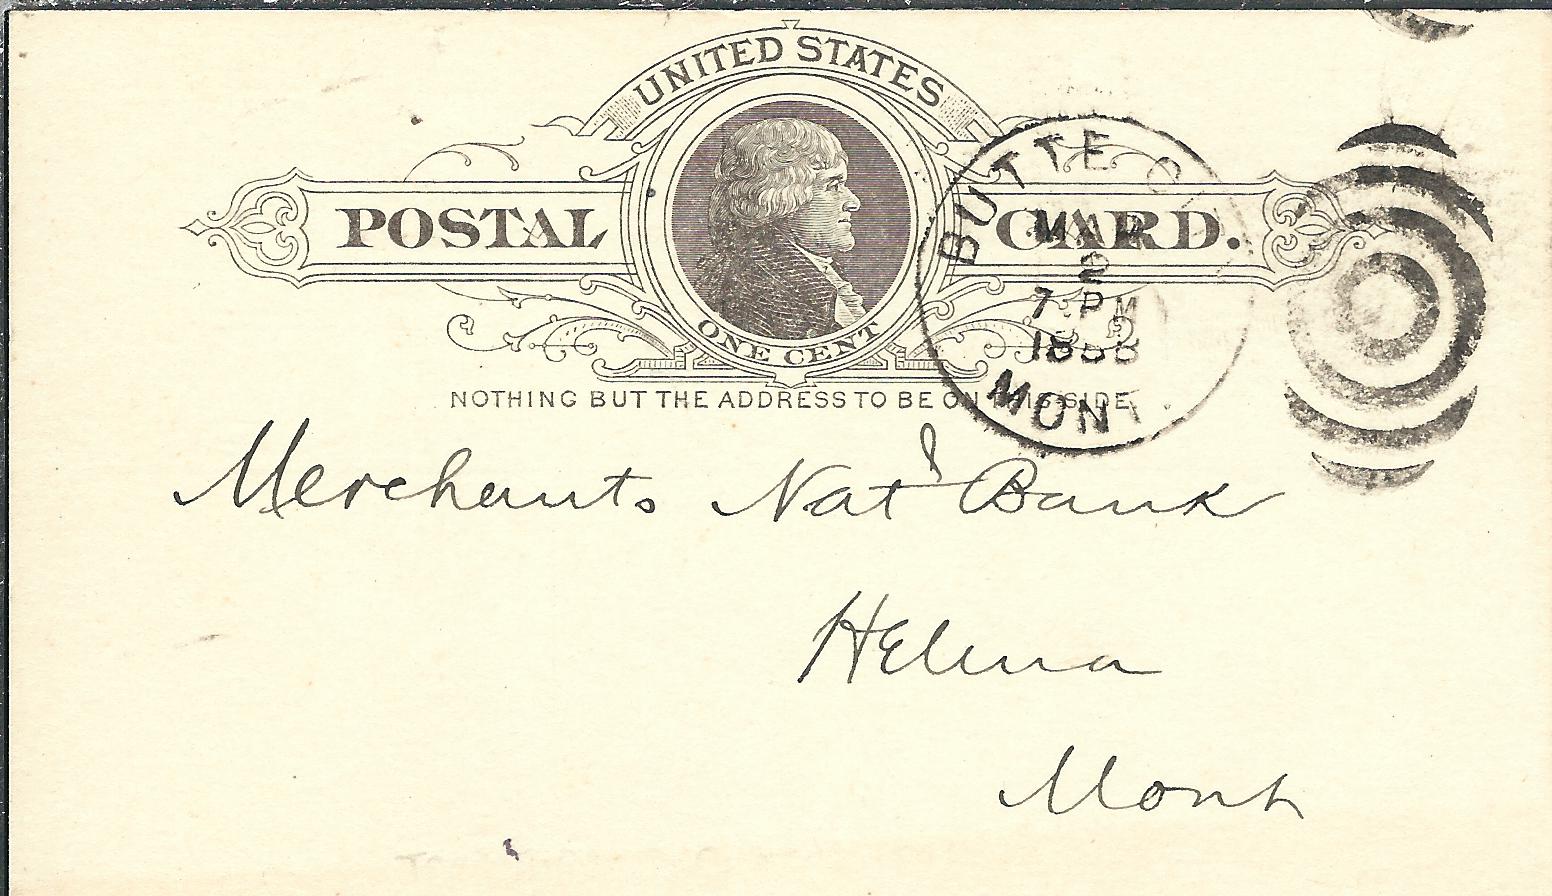 UNITED STATES
POSTAL CARD.
ONE CENT
NOTHING BUT THE ADDRESS TO BE ON THIS SIDE
BUTTE C
MAR
2
7 PM
1888
MONT.
Merchants Natl Bank
Helena
Mont